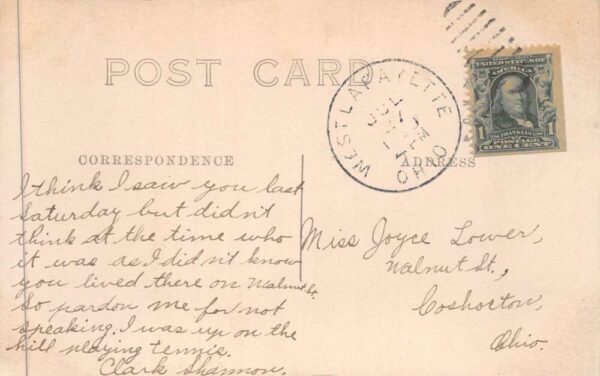 POST CARD
WEST LAFAYETTE
OHIO
JUL
SERIES 1902
UNITED STATES OF
AMERICA
1 1
FRANKLIN
POSTAGE
ONE CENT
CORRESPONDENCE
ADDRESS
I think I saw you last
Saturday but didn't
think at the time who
it was as I didn't know
you lived there on Walnut St.
So pardon me for not
speaking. I was up on the
hill playing tennis.
Clark Shannon.
Miss Joyce Lower,
Walnut St.,
Coshocton,
Ohio.